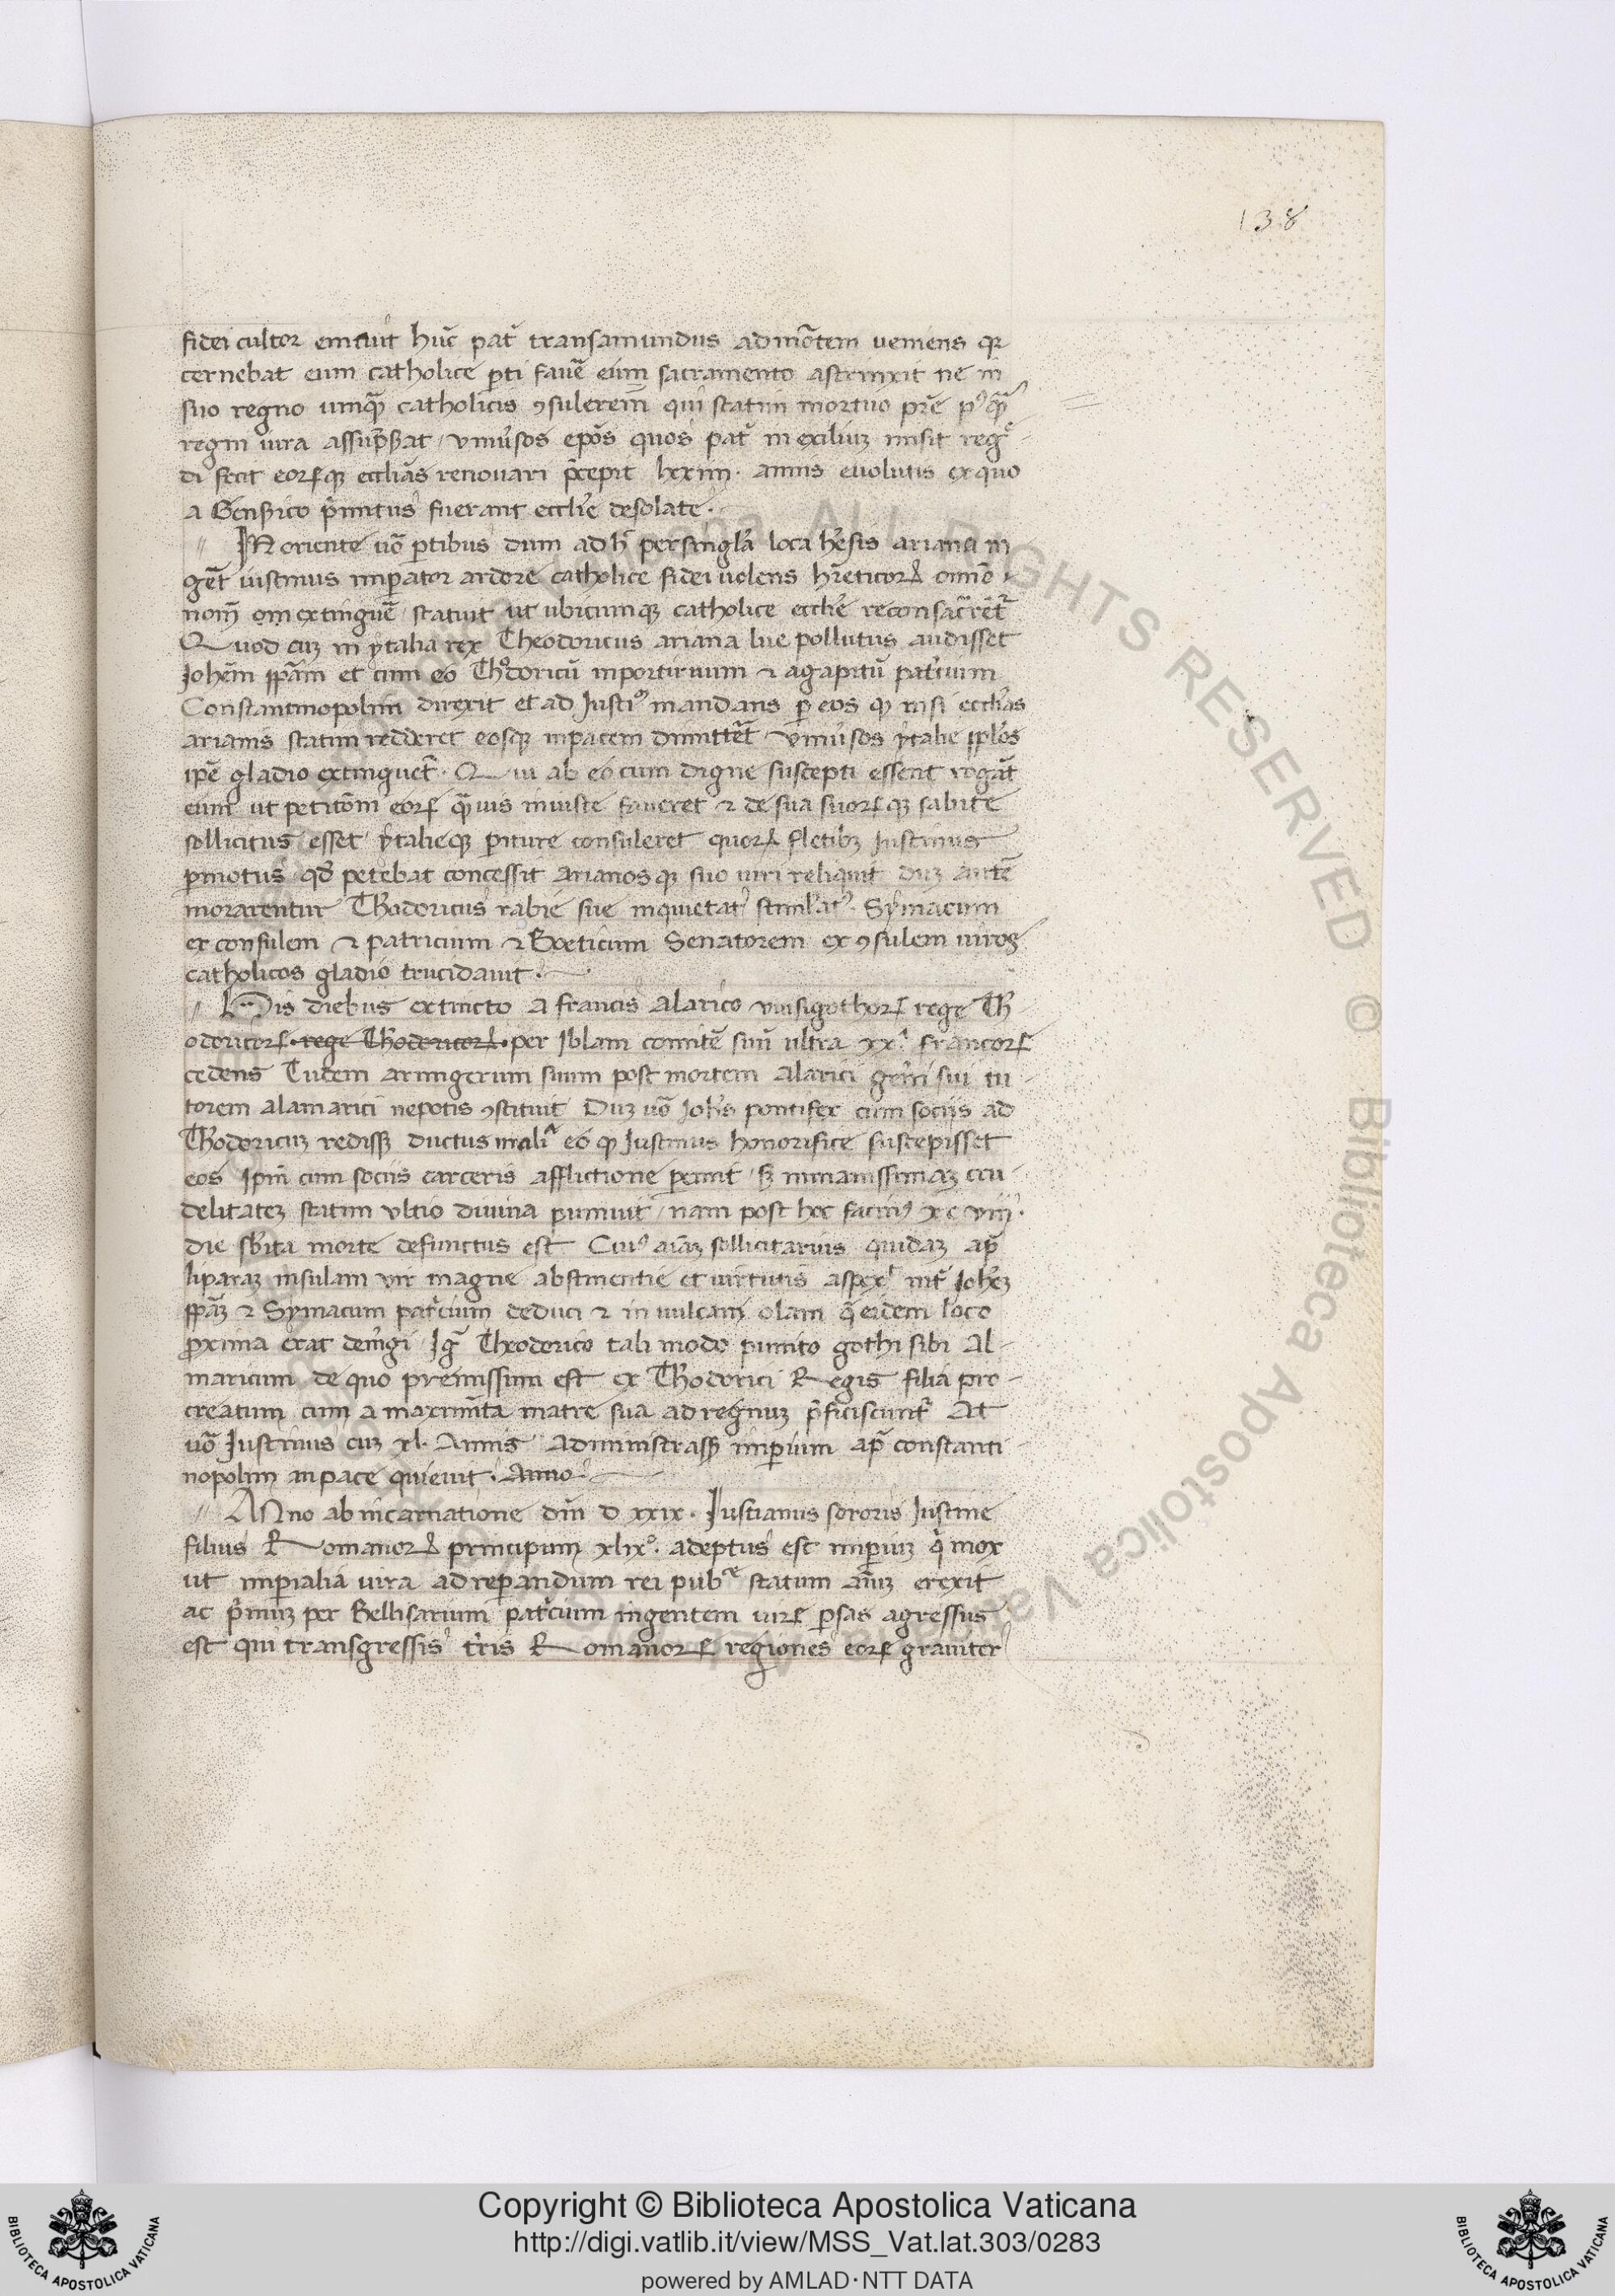 138
fidei cultor emicuit hūc pat̄ transamundus ad mōtem ueniens q̄
cernebat eum catholice p̄ti fauē eum sacramento astrinxit ne in
suo regno umq̄ catholicis ꝯsuleret qui statim mortuo pr̄e
regni iura assūpserat uniūsos ep̄os quos pat̄ in exilium misit reg
di fecit eorumq; eccl̄ias renouari p̄cepit lxxiiii. annis euolutis ex quo
a Genserico p̄mitus fuerant eccl̄ie desolate.
IN oriente uō p̄tibus dum adh̄ per singl̄a loca h̄esis ariana ui
gēt iustinus imp̄ator ardore catholice fidei uolens h̄eticorꝝ omīo
nom̄ extinguē statuit ut ubicumq; catholice eccl̄ie reconsacrēt
Quod cuꝫ in ytalia rex Theodoricus ariana lue pollutus audisset
Joh̄em pp̄am et cum eo Th̄odoricū inportunum ⁊ agapitū pat̄cium
Constantinopolim direxit et ad Justi mandans p̄ eos q̄ nisi eccl̄ias
arianis statim redderet eosq; in pacem dimittēt uniūsos ytalie ip̄los
ip̄e gladio extinguēt. Qui ab eo cum digne suscepti essent rogāt
eum ut petitōm eorꝝ q̄uis iniuste faueret ⁊ de sua suorꝝq; salute
sollicitus esset ytalieq; p̄iture consuleret quorꝝ fletibꝫ Justinus
p̄motus qđ petebat concessit arianosq; suo iuri reliquit Duꝫ autē
morarentur Th̄odoricus rabie sue inquietat̄ stimlat̄. Symacum
ex consulem ⁊ patricium ⁊ Boeticum Senatorem ex ꝯsulem uiros
catholicos gladio trucidauit.
His diebus extincto a francis Alarico uuisigothorꝝ rege Th̄
odoricorꝝ rege Th̄odoricorꝝ per Iblam comitē suū ultra xx. francorꝝ
cedens Tudem armigerum suum post mortem Alarici gen̄i sui tu
torem alamarici nepotis ꝯstituit Duꝫ uō Joh̄s pontifex cum sociis ad
Th̄odoricuꝫ redissꝫ ductus malī eo q̄ Justinus honorifice suscepisset
eos ip̄m cum sociis carceris afflictione p̄emit sꝫ inmanissimaꝫ cru
delitateꝫ statim ultio diuina puniuit nam post hoc facinꝰ xc uiii.
die sb̄ita morte defunctus est Cuiꝰ aīaꝫ sollicitarius quidaꝫ ap̄
liparaꝫ insulam uir magne abstinentie et uirtutis aspex̄ int̄ Joh̄eꝫ
pp̄aꝫ ⁊ Symacum pat̄cium deduci ⁊ in uulcani olam q̄ eidem loco
p̄xima erat dem̄gi Iḡ Theodorico tali modo punito gothi sibi Al
maricum de quo premissum est ex Th̄odorici Regis filia pro
creatum cum amaxiunta matre sua ad regnuꝫ p̄ficiscunt̄ At
uō Justinus cuꝫ xl. Annis administrassꝫ imp̄ium ap̄ constanti
nopolim in pace quieuit. Anno
ANno ab incarnatione dn̄i D xxix. Justianus sororis Justine
filius Romanorꝝ principum xlix°. adeptus est imp̄iuꝫ q̄ mox
ut imp̄ialia iura ad rep̄andum rei pub. statum aīuꝫ erexit
ac p̄muꝫ per Bellisarium pat̄cium ingentem uirꝝ p̄sas agressus
est qui transgressis t̄ris Romanorꝝ regiones eorꝝ grauiter
Copyright © Biblioteca Apostolica Vaticana
http://digi.vatlib.it/view/MSS_Vat.lat.303/0283
powered by AMLAD·NTT DATA
BIBLIOTECA APOSTOLICA VATICANA
BIBLIOTECA APOSTOLICA VATICANA